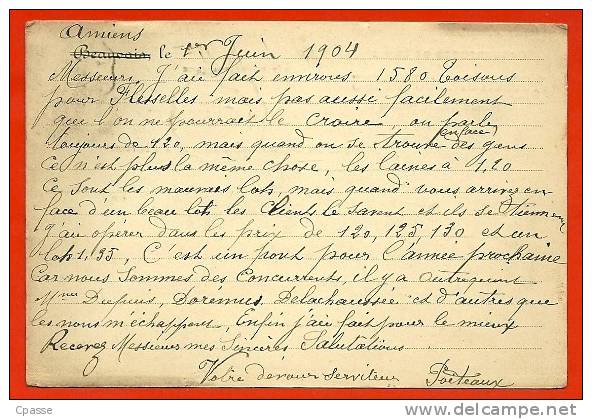 Amiens
Beauvais, le 1er Juin 1904
Messieurs, J'ai fait environs 1580 toisons
pour Flesselles mais pas aussi facilement
que l'on ne pourrait le croire, on parle
toujours de 120, mais quand on se trouve en face des gens
Ce n'est plus la même chose, les laines à 1,20
Ce sont les mauvais lots, mais quand vous arrivez en-
face d'un beau lot les clients le savent et ils se tiennent
j'ai opérer dans les prix de 120, 125, 130 et un
lot 1,35, C'est un pour l'année prochaine
Car nous sommes des Concurrents, il y a
Dupuis, Doremus, Delachaussée et d'autres que
les noms m'échappent, Enfin j'ai fait pour le mieux
Recevez Messieurs mes Sincères Salutations
Votre dévoué serviteur Poiteaux
Cpasse
www.delcampe.net